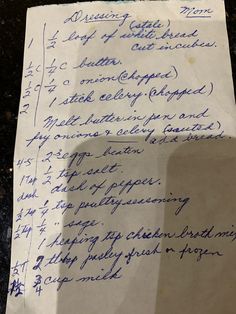 Dressing Mom
(stale)
1 1/2 loaf of white bread
cut in cubes.
1/2 c 1/4 c butter.
1/2 c 1/4 c onion (chopped)
2 1 stick celery. (chopped)
Melt butter in pan and
fry onions & celery (sauted)
add bread.
4-5 2-3 eggs beaten
1 Tsp 1/2 tsp salt.
dash dash of pepper.
1/4 tsp poultry seasoning
1/4 " sage.
1 heaping tsp chicken broth mix
2 tbsp parsley fresh or frozen
3/4 cup milk